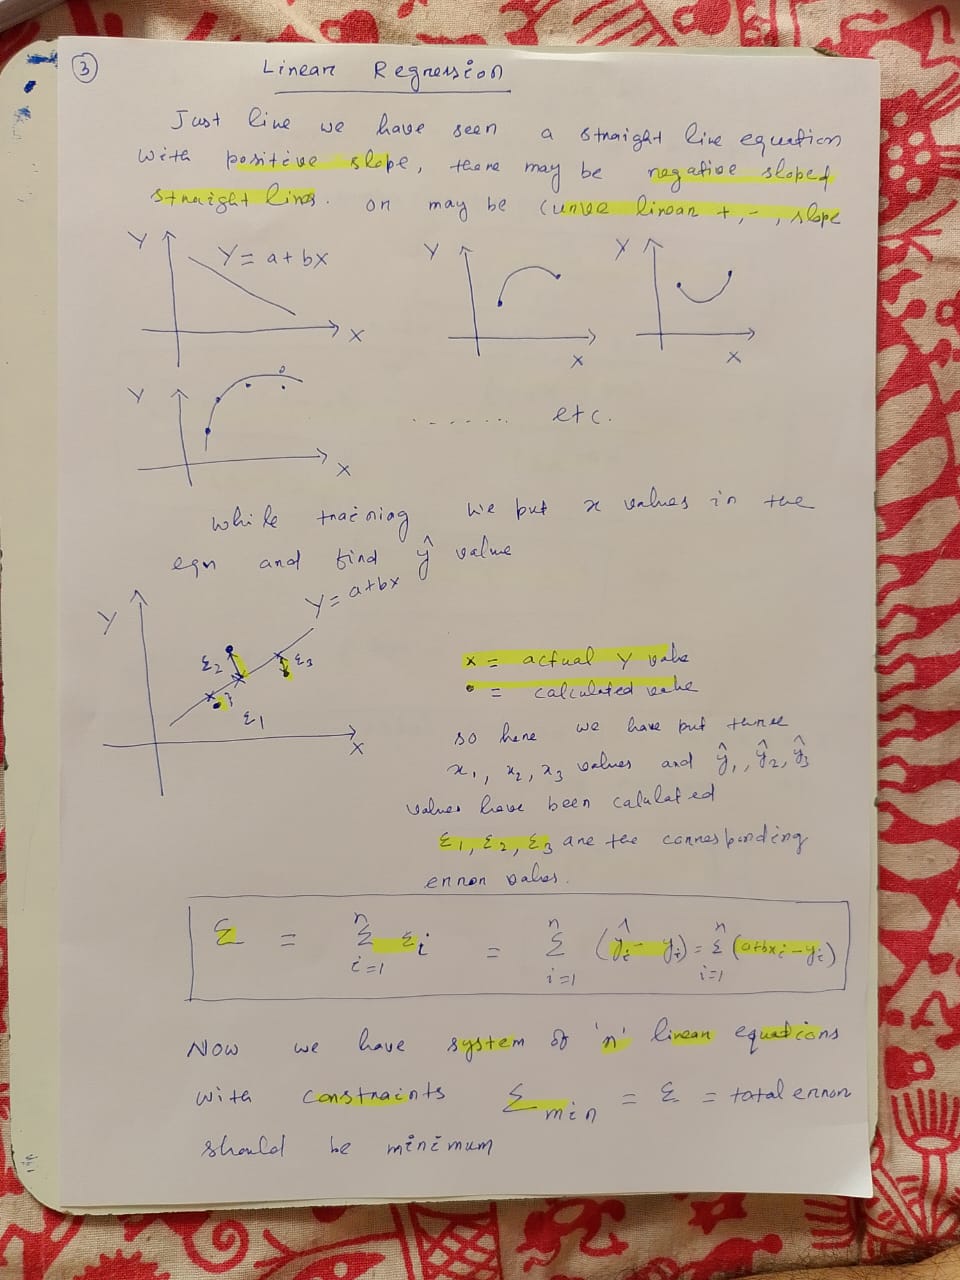 3
Linear Regression
Just like we have seen a straight line equation
with positive slope, there may be negative sloped
straight lines. or may be curve linear +, -, slope
Y Y = a + bx X
Y X
Y X
Y X
....... etc.
While training we put x values in the
eqn and find ŷ value
Y = a+bx
Y ε2 ε3 ε1 X
x = actual Y value
• = calculated value
so here we have put three
x1, x2, x3 values and ŷ1, ŷ2, ŷ3
values have been calulated
ε1, ε2, ε3 are the corresponding
error values.
Σ = Σ i=1 n εi = Σ i=1 n (ŷi - yi) = Σ i=1 n (a+bxi - yi)
Now we have system of 'n' linear equations
with constraints Σ min = ε = total error
should be minimum